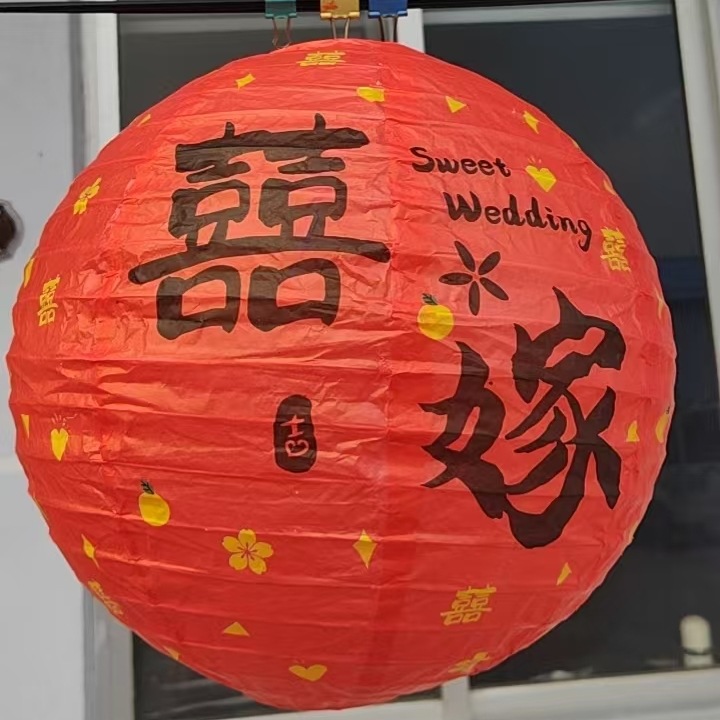 囍
囍
Sweet
Wedding
囍
囍
嫁
囍